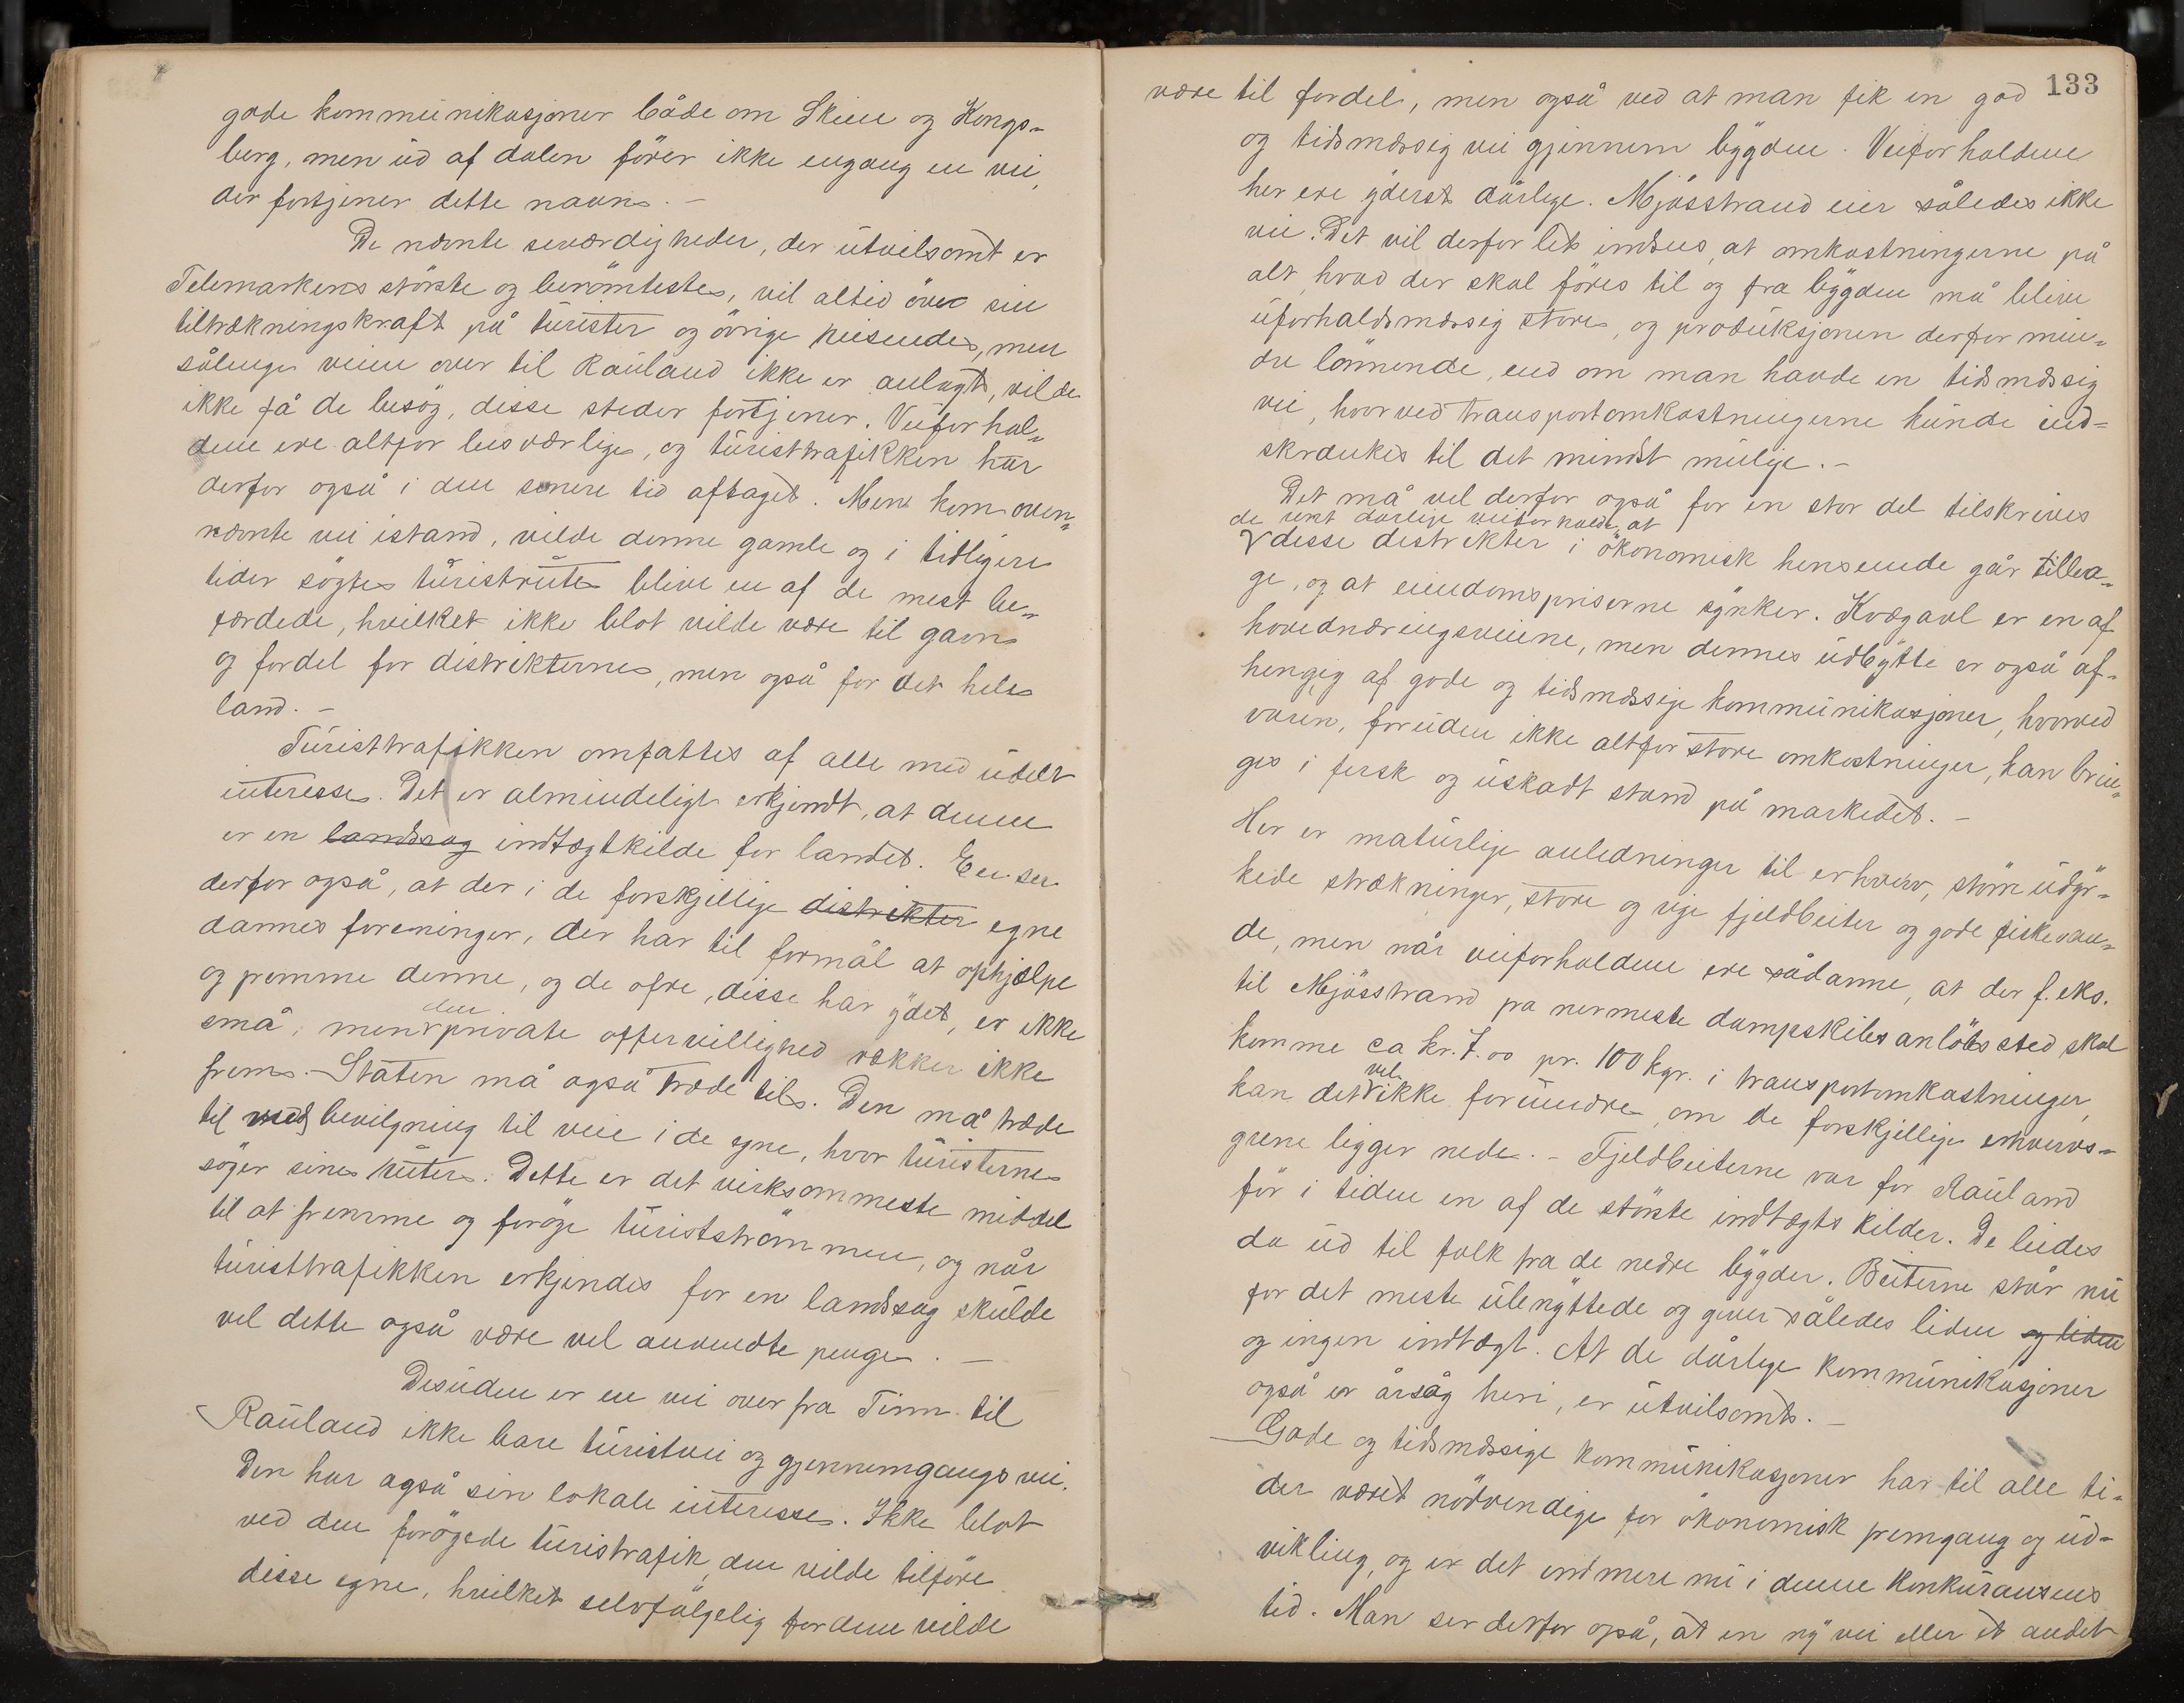 gode kommunikasjoner både om Skien og Kongs-
berg, men ud af dalen fører ikke engang en vei,
der fortjener dette navn. -
De nævnte seværdigheder, der utvilsomt er
Telemarkens störste og berömteste, vil altid öve sin
tiltrækningskraft på turister og övrige reisende, men
sålenge veien over til Rauland ikke er anlagt, vil de
ikke få de besög, disse steder fortjener. Veiforhol-
dene ere altfor besværlige, og turisttrafikken har
derfor også i den senere tid aftaget. Men kom oven-
nævnte vei istand, vilde denne gamle og i tidligere
tider sögte turistrute blive en af de mest be-
færdede, hvilket ikke blot vilde være til gavn
og fordel for distrikterne, men også for det hele
land. -
Turisttrafikken omfattes af alle med udelt
interesse. Det er almindeligt erkjendt, at denne
er en landssag indtægtkilde for landet. En ser
derfor også, at der i de forskjellige distrikter egne
dannes foreninger, der har til formål at ophjælpe
og fremme denne, og de ofre, disse har ydet, er ikke
små, men den private offervillighed rækker ikke
frem. Staten må også træde til. Den må træde
til med bevilgning til veie i de egne, hvor turisterne
söger sine ruter. Dette er det virksommeste middel
til at fremme og foröge turistströmmen, og når
turisttrafikken erkjendes for en landssag skulde
vel dette også være vel anvendte penge. -
Desuden er en vei over fra Tinn til
Rauland ikke bare turistvei og gjennemgangsvei.
Den har også sin lokale interesse. Ikke blot
ved den forögede turistrafik, den vilde tilföre
disse egne, hvilket selvfölgelig for dem vilde
133
være til fordel, men også ved at man fik en god
og tidsmæssig vei gjennem bygden. Veiforholdene
her ere yderst dårlige. Mjösstrand eier således ikke
vei. Det vil derfor let indsees, at omkostningerne på
alt hvad der skal föres til og fra bygden må blive
uforholdsmæssig store, og produksjonen derfor min-
dre lönnende, end om man havde en tidsmæssig
vei, hvorved transportomkostningerne kunde ind-
skrænkes til det mindst mulige. -
Det må vel derfor også for en stor del tilskrives
de rent dårlige veiforholde, at
disse distrikter i ökonomisk henseende går tilba-
ge, og at eiendomspriserne synker. Kvægavl er en af
hovednæringsveiene, men dennes udbytte er også af-
hengig af gode og tidsmæssige kommunikasjoner, hvorved
varen, foruden ikke altfor store omkostninger, kan brin-
ges i fersk og uskadt stand på markedet. -
Her er naturlige anledninger til erhverv, större udyr-
kede strækninger, store og rige fjeldbeiter og gode fiskevan-
de, men når veiforholdene ere sådanne, at der f. eks.
til Mjösstrand fra nermeste dampskibsanlöbssted skal
komme ca kr. 7.00 pr. 100 kgr. i transportomkostninger,
kan det vel ikke forundre, om de forskjellige erhvervs-
grene ligger nede. - Fjeldbeiterne var for Rauland
för i tiden en af de störste indtægts kilder. De leides
da ud til folk fra de nedre bygder. Beiterne står nu
for det meste ubenyttede og giver således liden og liden
og ingen indtægt. At de dårlige kommunikasjoner
også er årsag heri, er utvilsomt. -
Gode og tidsmæssige kommunikasjoner har til alle ti-
der været nödvendige for ökonomisk fremgang og ud-
vikling, og er det end mere nu i denne konkuransens
tid. Man ser derfor også, at en ny vei eller et andet